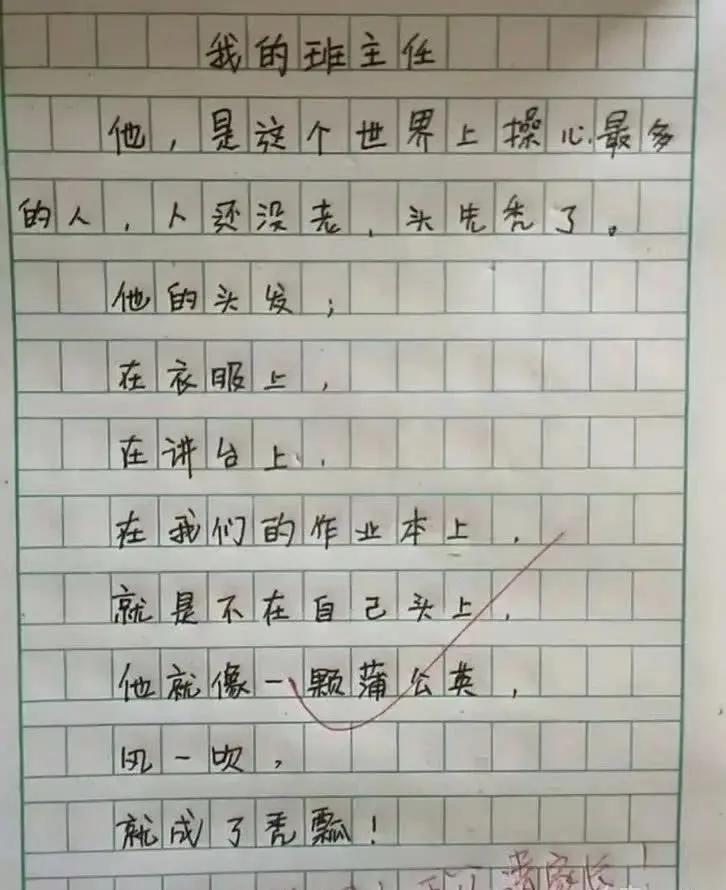 我的班主任
他，是这个世界上操心最多
的人，人还没老，头先秃了。
他的头发；
在衣服上，
在讲台上，
在我们的作业本上，
就是不在自己头上，
他就像一颗蒲公英，
风一吹，
就成了秃瓢！
请家长！